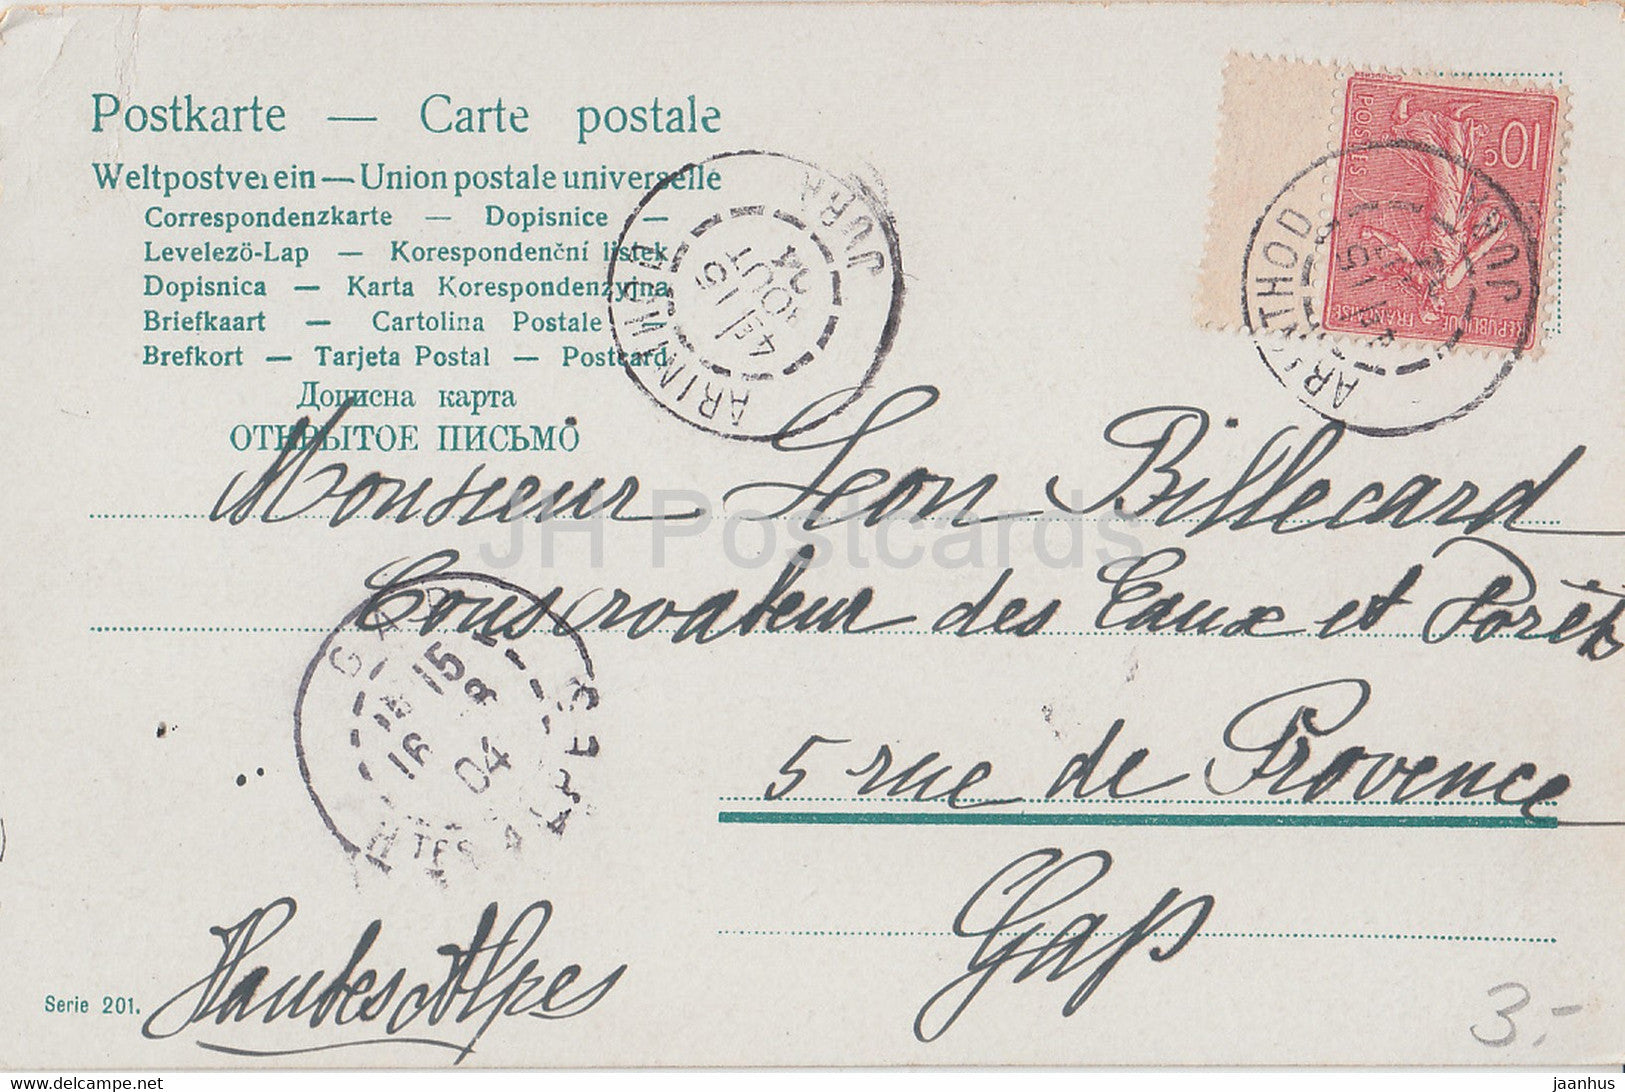 Postkarte — Carte postale
Weltpostverein — Union postale universelle
Correspondenzkarte — Dopisnice —
Levelezö-Lap — Korespondenční listek
Dopisnica — Karta Korespondenzyjna
Briefkaart — Cartolina Postale
Brefkort — Tarjeta Postal — Postcard
Дописна карта
ОТКРЫТОЕ ПИСЬМО
10 c
POSTES
REPUBLIQUE FRANÇAISE
ARINTHOD
JURA
ARINTHOD
15
AOUT
04
JURA
Monsieur Léon Billecard
Conservateur des Eaux et Forêts
5 rue de Provence
Gap
Hautes Alpes
GAP
15
16 8
04
HTES ALPES
JH Postcards
Serie 201.
3.-
delcampe.net
jaanhus